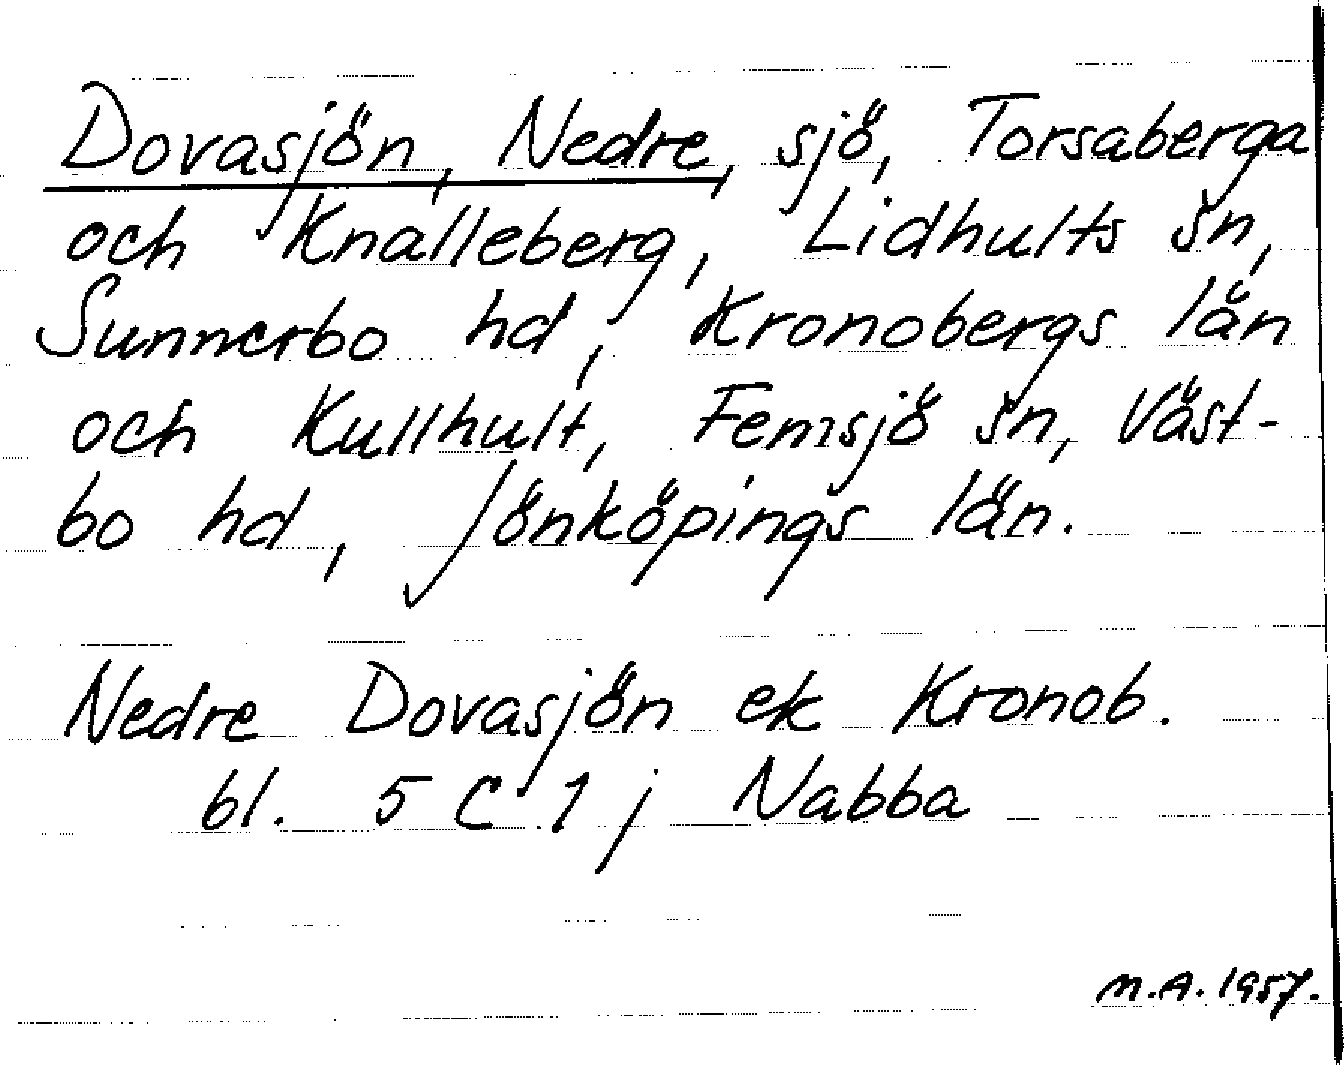 Dovasjön, Nedre, sjö, Torsaberga
och Knalleberg, Lidhults sn,
Sunnerbo hd, Kronobergs län
och Kullhult, Femsjö sn, Väst-
bo hd, Jönköpings län.
Nedre Dovasjön ek Kronob.
bl. 5 C 1 j Nabba
M.A. 1957.